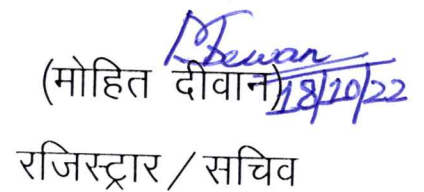 Dewan
(मोहित दीवान) 18/10/22
रजिस्ट्रार / सचिव